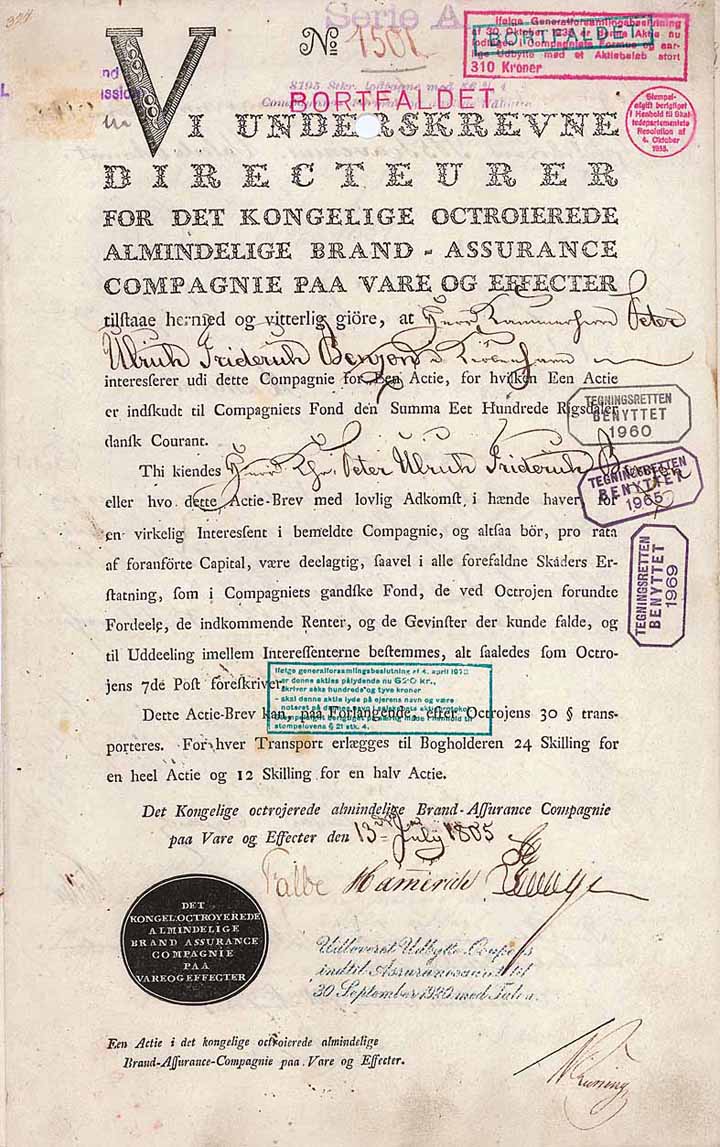 Serie A
324
No 1501
Ifølge Generalforsamlingsbeslutning
af 30. Oktober 193 er Denne Aktie nu
lodtagen i Compagniets Formue og aar-
lige Udbytte med et Aktiebeløb stort
310 Kroner
BORTFALDET
8195 Stkr.
BORTFALDET
Stempel-
afgift berigtiget
i Henhold til Skat-
tedepartementets
Resolution af
4. Oktober
1935.
VI UNDERSKREVNE
DIRECTEURER
FOR DET KONGELIGE OCTROIEREDE
ALMINDELIGE BRAND-ASSURANCE
COMPAGNIE PAA VARE OG EFFECTER
tilstaae hermed og vitterlig giöre, at Herr Kammerherre Peter
Ulrich Friderich Benzon i Kiöbenhavn
interesserer udi dette Compagnie for Een Actie, for hvilken Een Actie
er indskudt til Compagniets Fond den Summa Eet Hundrede Rigsdaler
dansk Courant.
TEGNINGSRETTEN
BENYTTET
1960
Thi kiendes Herr Khr. Peter Ulrich Friderich Benzon
eller hvo dette Actie-Brev med lovlig Adkomst i hænde haver, for
en virkelig Interessent i bemeldte Compagnie, og altsaa bör, pro rata
af foranförte Capital, være deelagtig, saavel i alle forefaldne Skaders Er-
statning, som i Compagniets gandske Fond, de ved Octrojen forundte
Fordeele, de indkommende Renter, og de Gevinster der kunde falde, og
til Uddeeling imellem Interessenterne bestemmes, alt saaledes som Octro-
jens 7de Post foreskriver.
TEGNINGSRETTEN
BENYTTET
1965
TEGNINGSRETTEN
BENYTTET
1969
Ifølge generalforsamlingsbeslutning af 4. april
er denne akties pålydende nu 620 kr.,
skriver seks hundrede og tyve kroner
- skal denne aktie lyde på ejerens navn og være
stempelovens § 21 stk. 4.
Dette Actie-Brev kan, paa Forlangende, efter Octrojens 30 § trans-
porteres. For hver Transport erlægges til Bogholderen 24 Skilling for
en heel Actie og 12 Skilling for en halv Actie.
Det Kongelige octrojerede almindelige Brand-Assurance Compagnie
paa Vare og Effecter den 13de July 1805
Falbe Hamerich
DET
KONGEL:OCTROYEREDE
ALMINDELIGE
BRAND ASSURANCE
COMPAGNIE
PAA
VARE OG EFFECTER
Udloveret Udbytte-Coupons
indtil Assuranceaaret til
30 September 1920 med Talon.
Een Actie i det kongelige octroierede almindelige
Brand-Assurance-Compagnie paa Vare og Effecter.